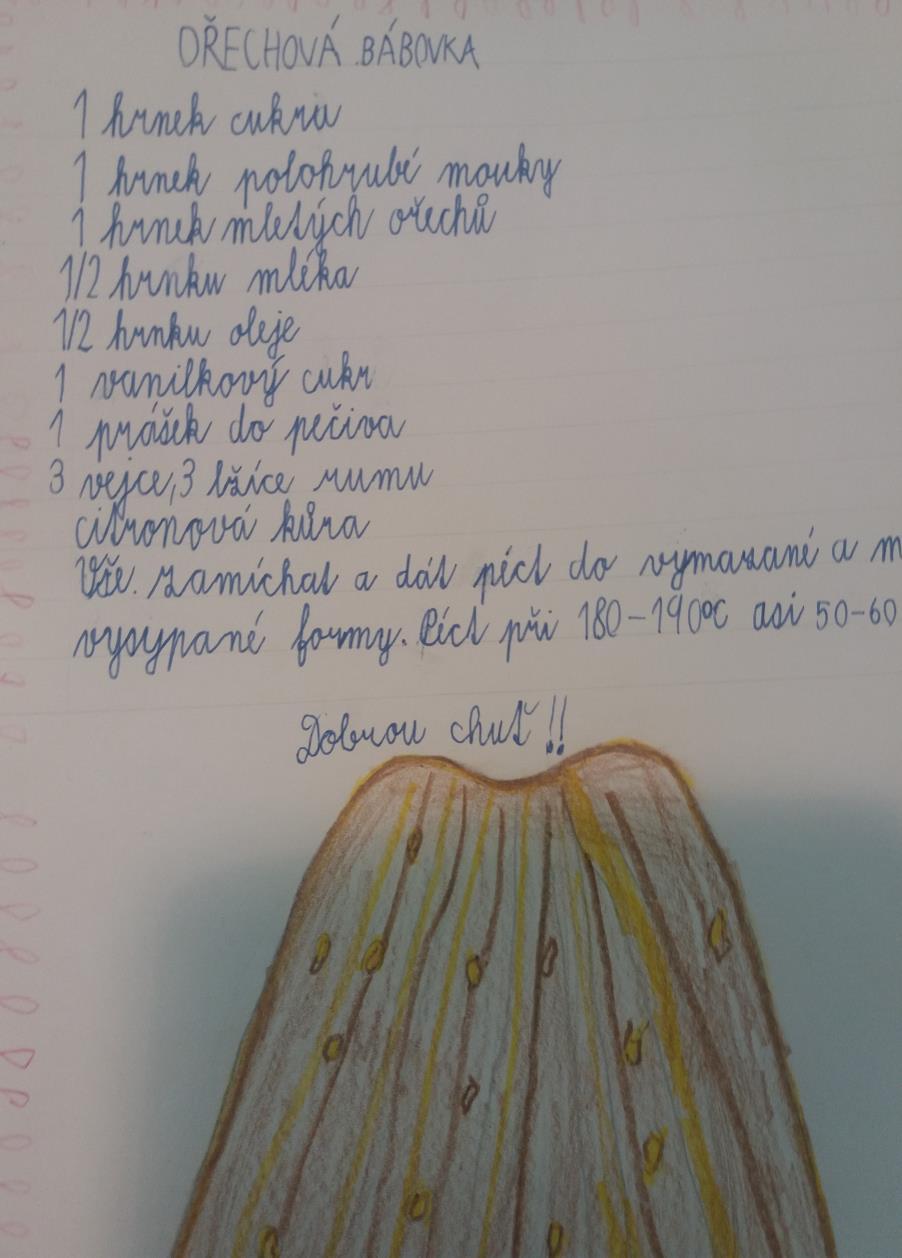 OŘECHOVÁ BÁBOVKA
1 hrnek cukru
1 hrnek polohrubé mouky
1 hrnek mletých ořechů
1/2 hrnku mléka
1/2 hrnku oleje
1 vanilkový cukr
1 prášek do pečiva
3 vejce, 3 lžíce rumu
citronová kůra
Vše. zamíchat a dát péct do vymazané a m
vysypané formy. Péct při 180-190°C asi 50-60
Dobrou chuť!!